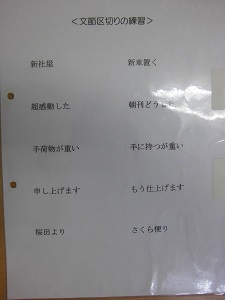 ＜文節区切りの練習＞
新社屋　新車置く
超感動した　朝刊どうした
手荷物が重い　手に持つが重い
申し上げます　もう仕上げます
桜田より　さくら便り